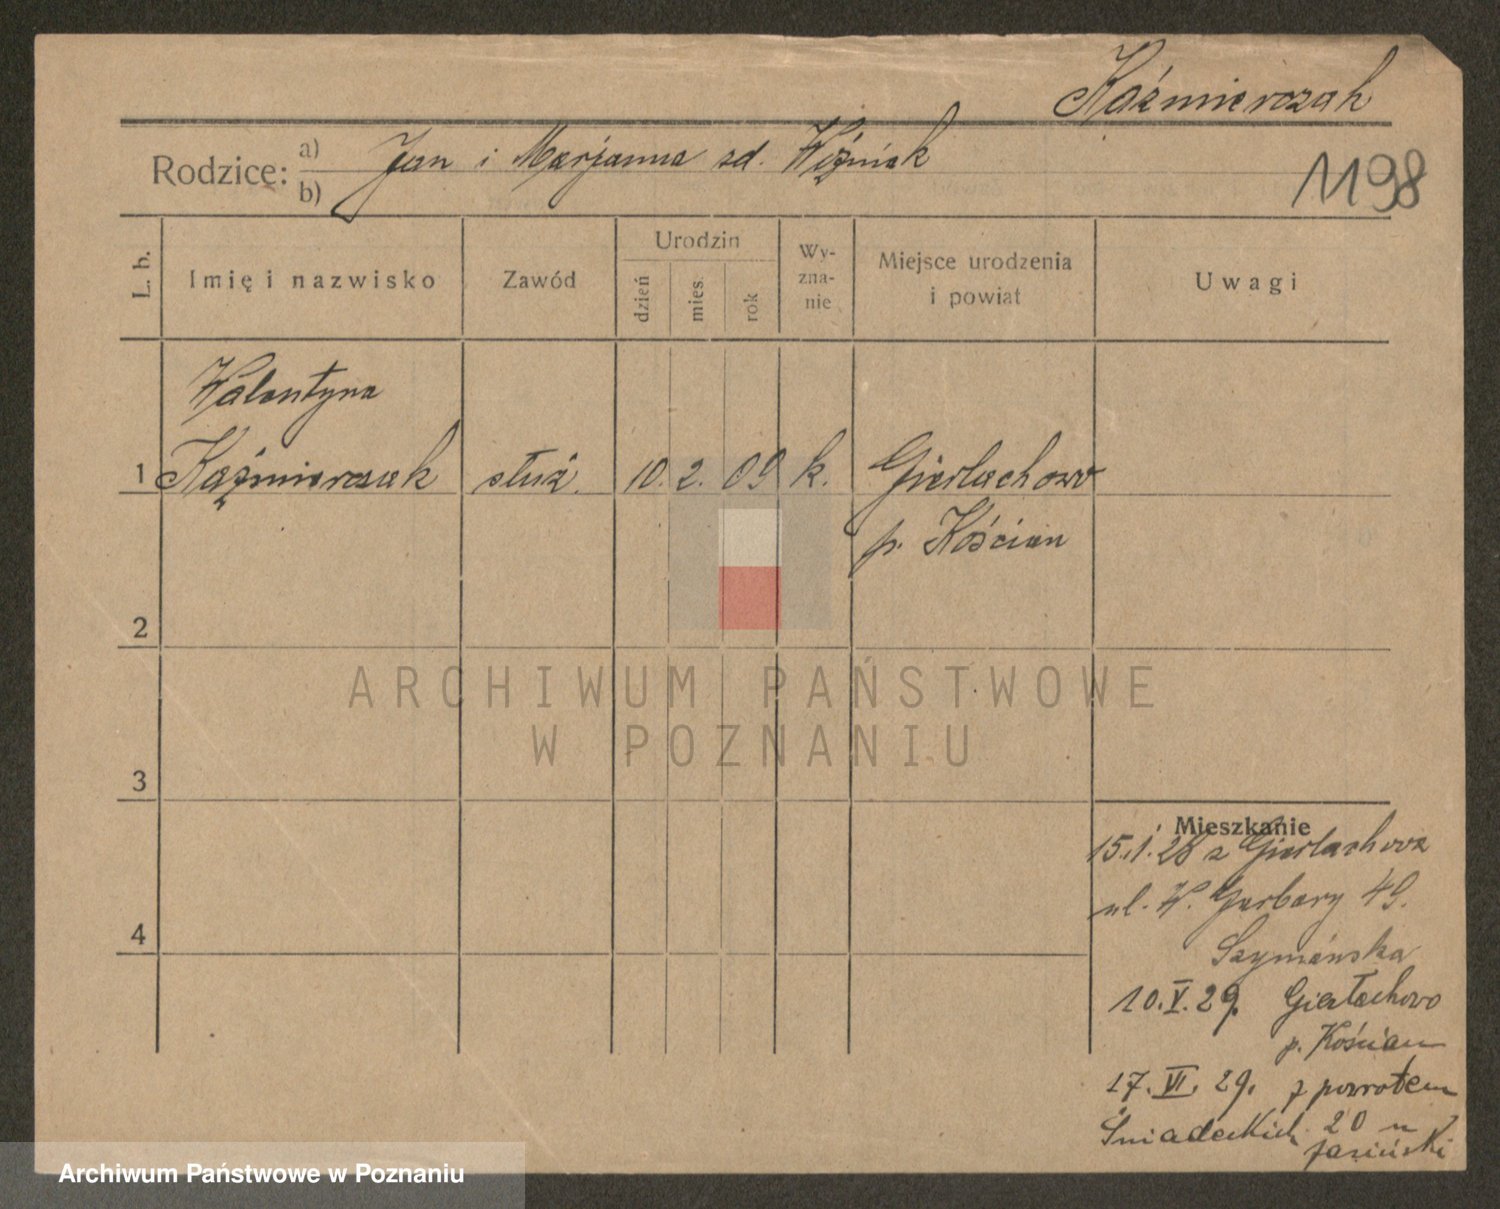 Kaźmierczak
Rodzice: a) b) Jan i Marjanna zd. Woźniak
1198
L. b.
Imię i nazwisko
Zawód
Urodzin
dzień
mies.
rok
Wy-
zna-
nie
Miejsce urodzenia
i powiat
Uwagi
Walentyna
1 Kaźmierczak służ. 10. 2. 09 k. Gierłachowo
p. Kościan
2
3
4
Mieszkanie
15.1.28 z Gierłachowa
ul. W. Garbary 49.
Szymańska
10.V.29. Gierłachowo
p. Kościan
17.VI.29. z powrotem
Śniadeckich 20 u
Jasiński
ARCHIWUM PAŃSTWOWE
W POZNANIU
Archiwum Państwowe w Poznaniu